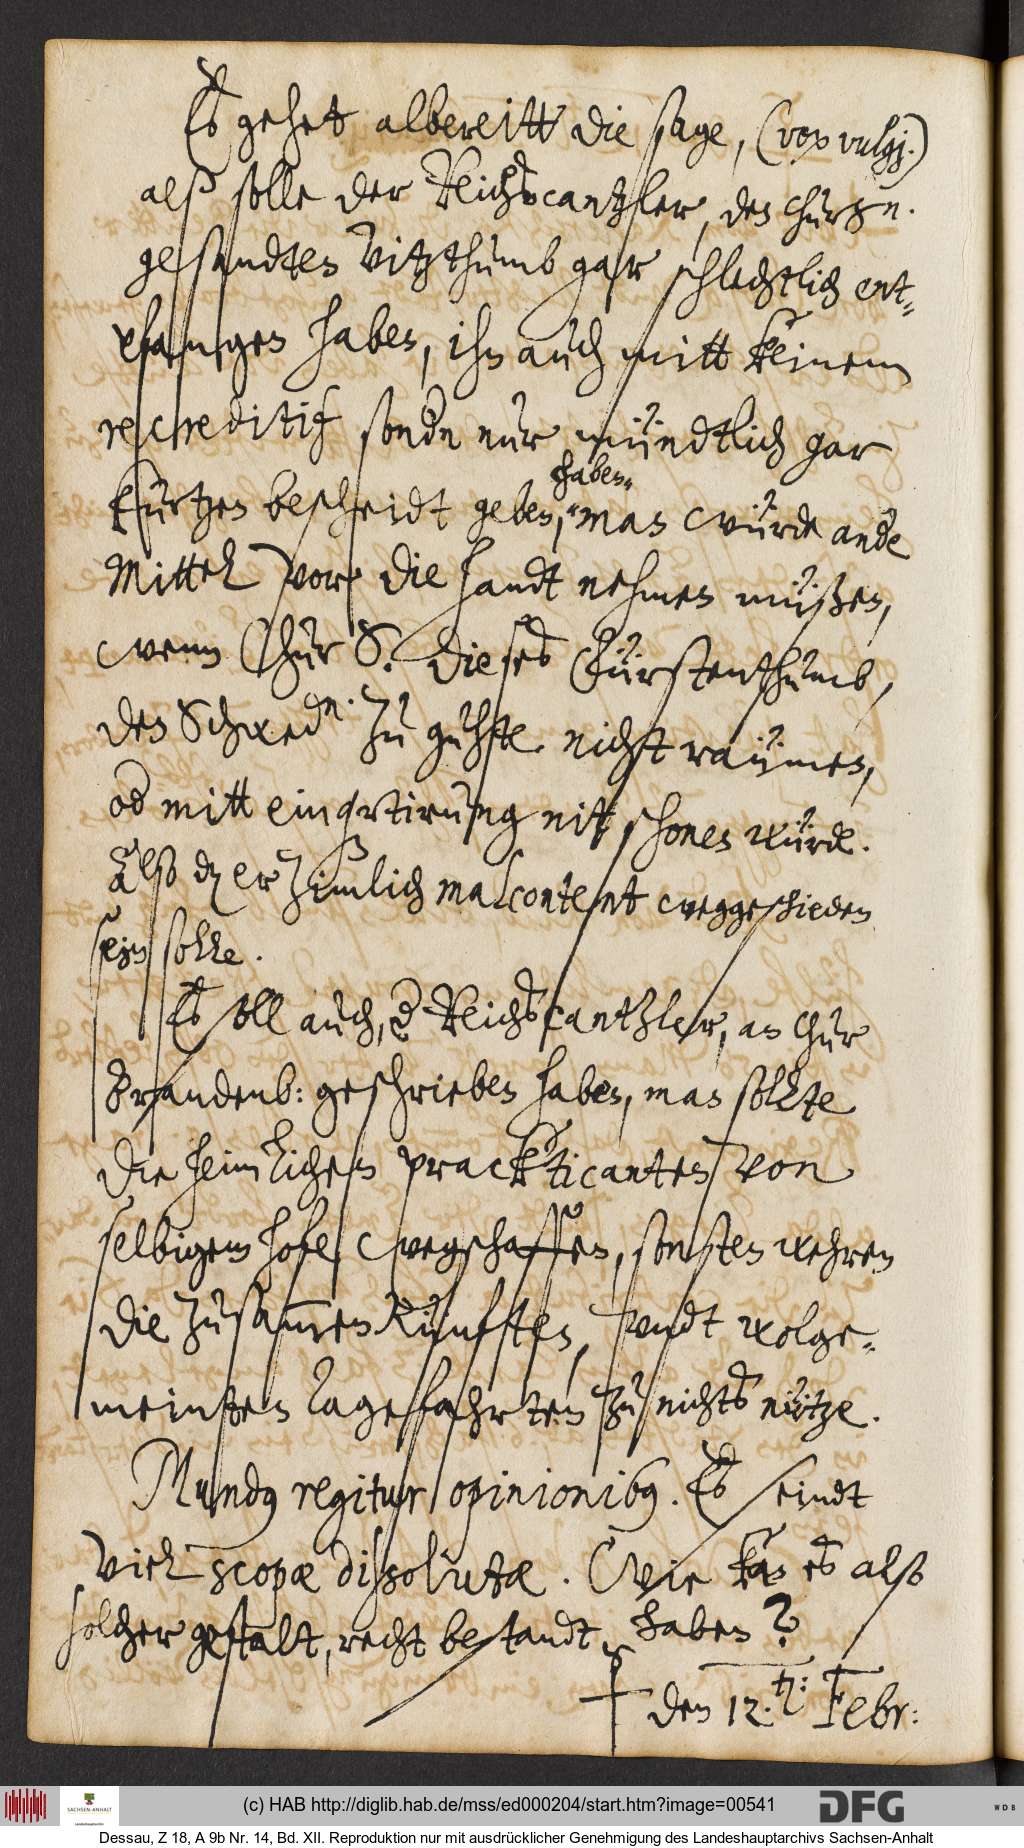 Es gehet albereitt die sage, (vox vulgj.)
alß solle der Reichscantzler, den ChurS.n.
gesandten Vitzthumb gar schlechtlich ent-
pfangen haben, ihn auch mitt keinem
recreditif sondn nur mündtlich gar
kurtzen bescheidt geben, haben, man würde ande
Mittel vor die handt nehmen müßen,
wenn Chur S. dieses Fürstenthumb,
den Schwedn. zu guhte nicht raümen,
od mitt einqrtirung nitt schonen würde.
Alß dz er zimlich malcontent weggeschieden
sein solle.
Es soll auch, d Reichscantzler, an Chur
Brandenb: geschrieben haben, man sollte
die heimlichen prackticanten von
selbigem hofe wegschaffen, sonsten wehren
die zusammenkunften, undt wolge-
meinten Tagefahrten zu nichts nütze.
Mundq regitur opinionibq. Es seindt
viel scopæ dissolutæ. Wie kan es alß
solcher gestalt, recht bestandt haben?
den 12.ten: Febr:
(c) HAB http://diglib.hab.de/mss/ed000204/start.htm?image=00541
DFG
WDB
SACHSEN-ANHALT
Dessau, Z 18, A 9b Nr. 14, Bd. XII. Reproduktion nur mit ausdrücklicher Genehmigung des Landeshauptarchivs Sachsen-Anhalt